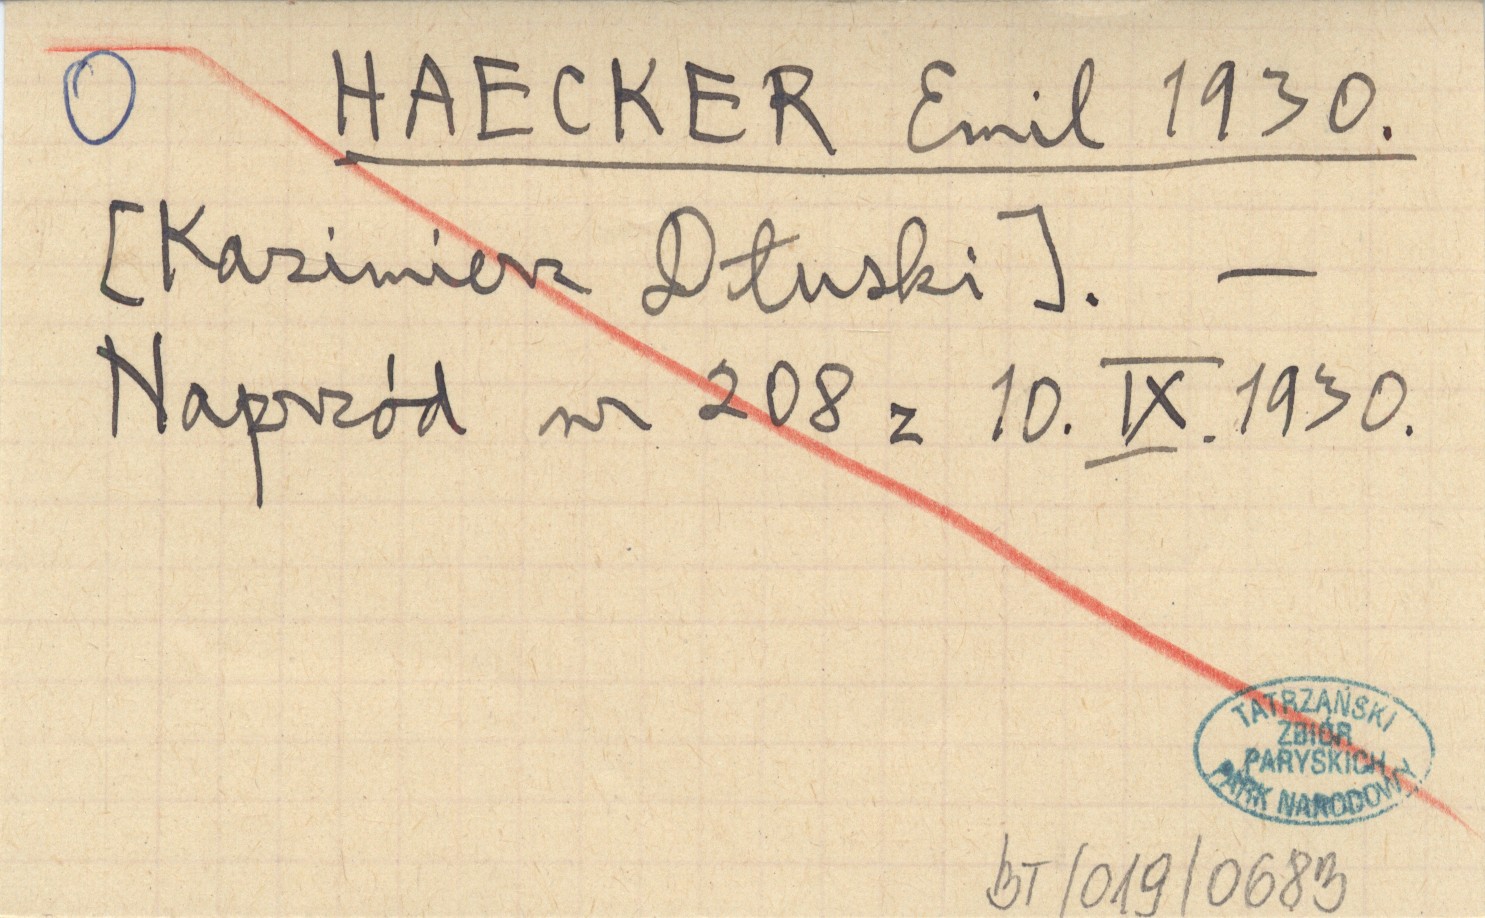 O HAECKER Emil 1930.
[Kazimierz Dłuski]. —
Naprzód nr 208 z 10. IX. 1930.
TATRZAŃSKI
ZBIÓR
PARYSKICH
PARK NARODOWY
BT/019/0683